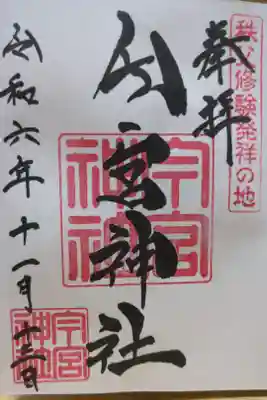 秩父修験発祥の地
奉拝
今宮神社
今宮神社
令和六年十一月
今宮神社